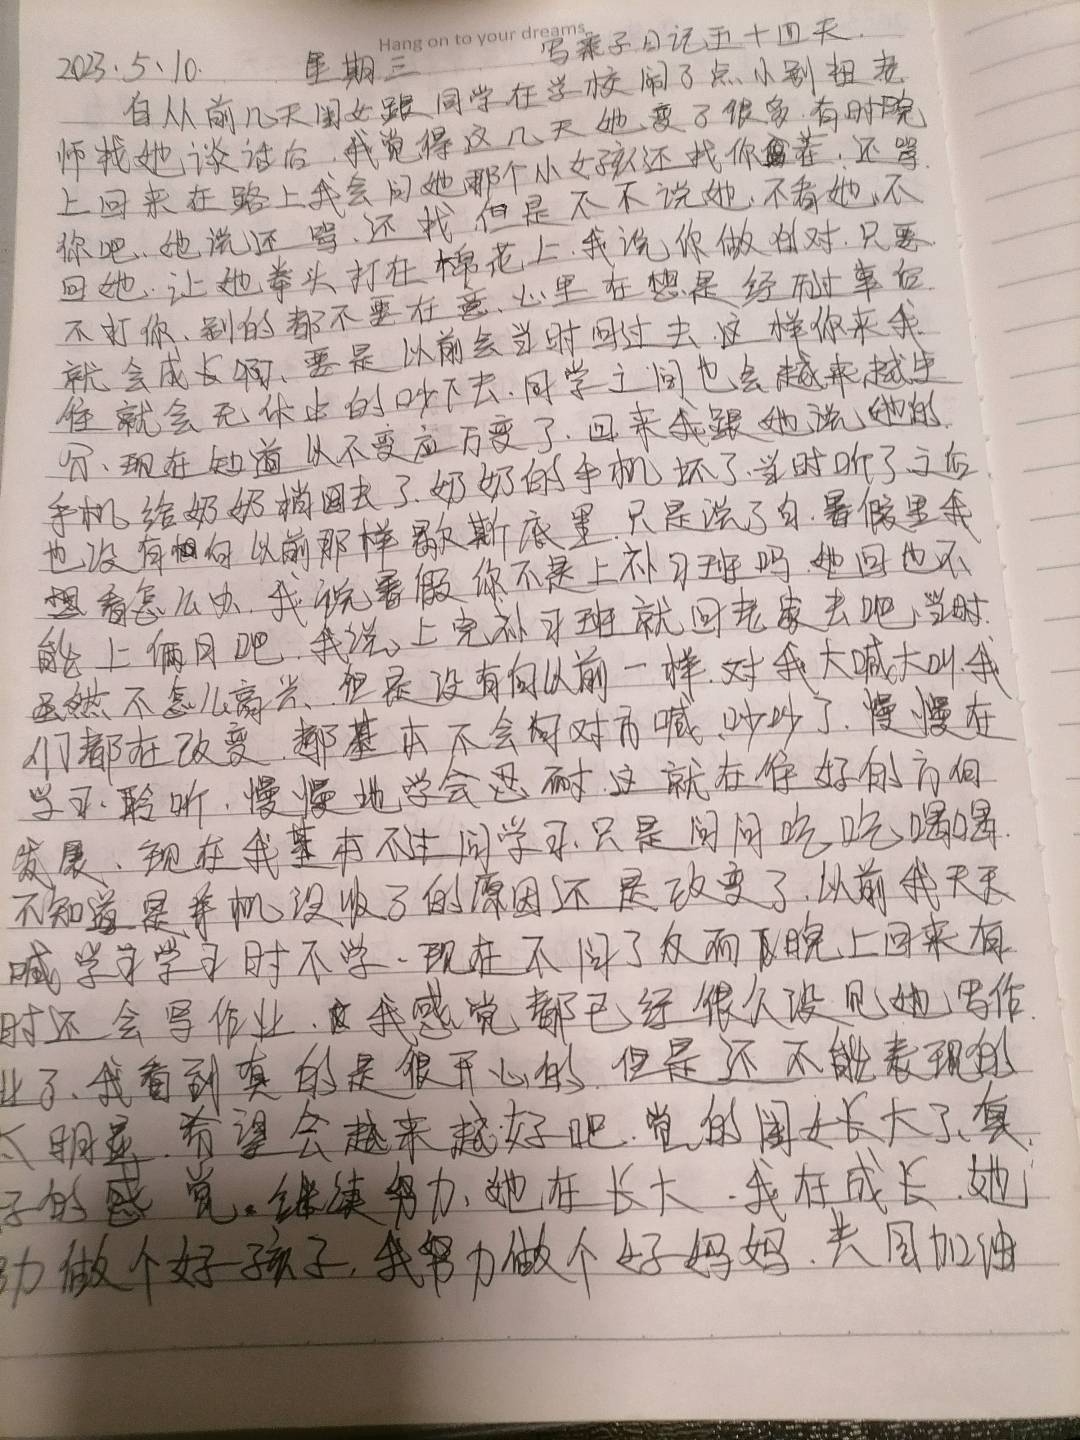 Hang on to your dreams.
2023.5.10. 星期三 写亲子日记五十四天.
自从前几天闺女跟同学在学校闹了点小别扭老
师找她谈话后.我觉得这几天她变了很多.有时晚
上回来在路上我会问她那个小女孩还找你茬.还骂
你吧、她说还骂、还找.但是不不说她.不看她.不
回她.让她拳头打在棉花上.我说你做的对.只要
不打你、别的都不要在意.心里在想是经过事后
就会成长啊、要是以前会当时回过去.这样你来我
往就会无休止的吵下去.同学之间也会越来越生
分、现在知道以不变应万变了.回来我跟她说她的
手机给奶奶捎回去了.奶奶的手机坏了.当时听了之后
也没有向以前那样歇斯底里.只是说了句.暑假里我
想看怎么办.我说暑假你不是上补习班吗.她回也不
能上俩月吧.我说.上完补习班就回老家去吧、当时
虽然不怎么高兴、但是没有向以前一样.对我大喊大叫.我
们都在改变.都基本不会向对方喊、吵吵了.慢慢在
学习、聆听.慢慢地学会忍耐.这就在往好的方向
发展、现在我基本不问学习.只是问问吃吃喝喝.
不知道是手机没收了的原因还是改变了.以前我天天
喊学习学习时不学.现在不问了反而晚上回来有
时还会写作业.我感觉都已经很久没见她写作
业了、我看到真的是很开心的.但是还不能表现的
太明显.希望会越来越好吧.觉的闺女长大了、真
子的感觉。继续努力、她在长大.我在成长.她
力做个好孩子.我努力做个好妈妈.共同加油